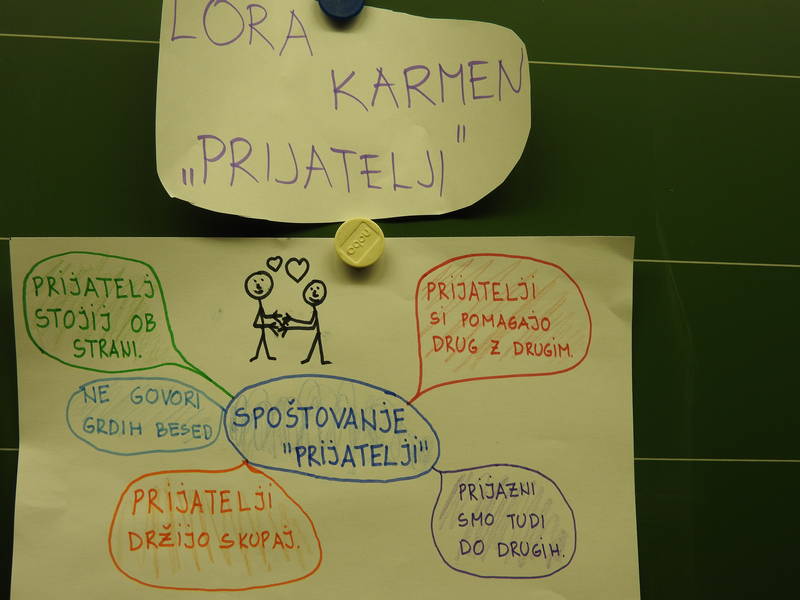 LORA
KARMEN
„PRIJATELJI"
PRIJATELJ
STOJIJ OB
STRANI.
PRIJATELJI
SI POMAGAJO
DRUG Z DRUGIM.
NE GOVORI
GRDIH BESED
SPOŠTOVANJE
"PRIJATELJI"
PRIJATELJI
DRŽIJO SKUPAJ.
PRIJAZNI
SMO TUDI
DO DRUGIH.
nobo